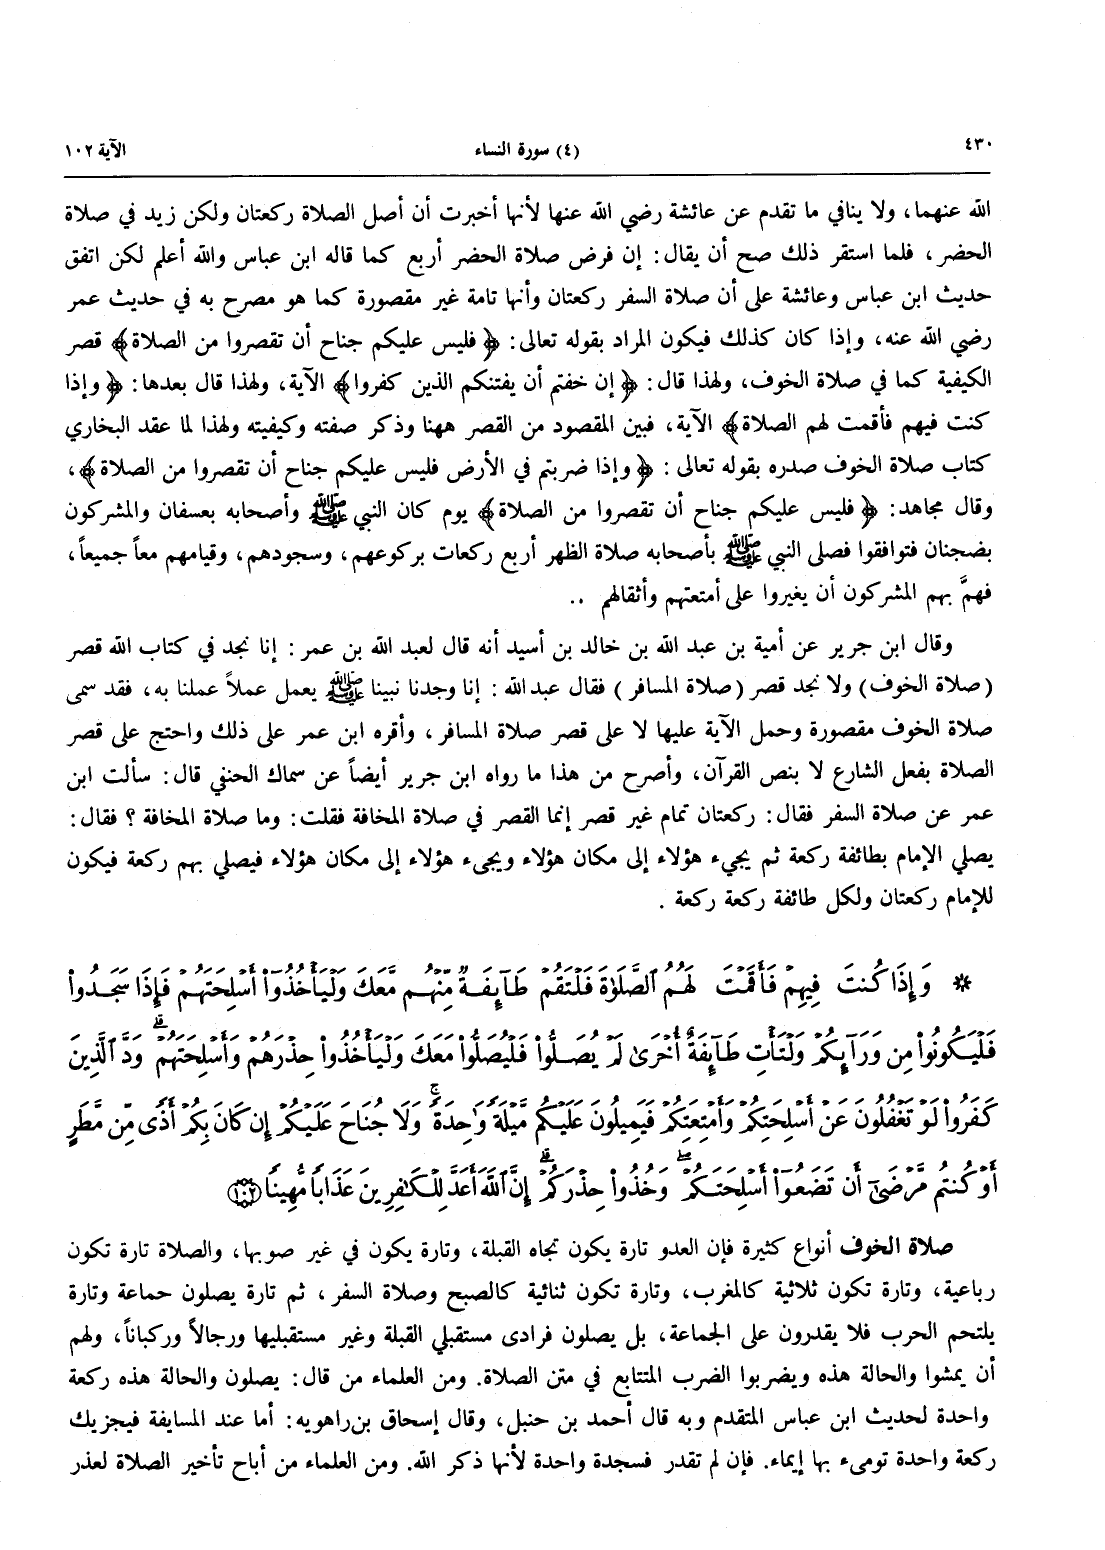 ٤٣٠ (٤) سورة النساء الآية ١٠٢
الله عنهما، ولا ينافي ما تقدم عن عائشة رضي الله عنها لأنها أخبرت أن أصل الصلاة ركعتان ولكن زيد في صلاة
الحضر، فلما استقر ذلك صح أن يقال: إن فرض صلاة الحضر أربع كما قاله ابن عباس والله أعلم لكن اتفق
حديث ابن عباس وعائشة على أن صلاة السفر ركعتان وأنها تامة غير مقصورة كما هو مصرح به في حديث عمر
رضي الله عنه، وإذا كان كذلك فيكون المراد بقوله تعالى: ﴿فليس عليكم جناح أن تقصروا من الصلاة﴾ قصر
الكيفية كما في صلاة الخوف، ولهذا قال: ﴿إن خفتم أن يفتنكم الذين كفروا﴾ الآية، ولهذا قال بعدها: ﴿وإذا
كنت فيهم فأقمت لهم الصلاة﴾ الآية، فبين المقصود من القصر ههنا وذكر صفته وكيفيته ولهذا لما عقد البخاري
كتاب صلاة الخوف صدره بقوله تعالى: ﴿وإذا ضربتم في الأرض فليس عليكم جناح أن تقصروا من الصلاة﴾،
وقال مجاهد: ﴿فليس عليكم جناح أن تقصروا من الصلاة﴾ يوم كان النبي ﷺ وأصحابه بعسفان والمشركون
بضجنان فتوافقوا فصلى النبي ﷺ بأصحابه صلاة الظهر أربع ركعات بركوعهم، وسجودهم، وقيامهم معاً جميعاً،
فهمَّ بهم المشركون أن يغيروا على أمتعتهم وأثقالهم ..
وقال ابن جرير عن أمية بن عبد الله بن خالد بن أسيد أنه قال لعبد الله بن عمر: إنا نجد في كتاب الله قصر
(صلاة الخوف) ولا نجد قصر (صلاة المسافر) فقال عبد الله: إنا وجدنا نبينا ﷺ يعمل عملاً عملنا به، فقد سمى
صلاة الخوف مقصورة وحمل الآية عليها لا على قصر صلاة المسافر، وأقره ابن عمر على ذلك واحتج على قصر
الصلاة بفعل الشارع لا بنص القرآن، وأصرح من هذا ما رواه ابن جرير أيضاً عن سماك الحنفي قال: سألت ابن
عمر عن صلاة السفر فقال: ركعتان تمام غير قصر إنما القصر في صلاة المخافة فقلت: وما صلاة المخافة؟ فقال:
يصلي الإمام بطائفة ركعة ثم يجيء هؤلاء إلى مكان هؤلاء ويجيء هؤلاء إلى مكان هؤلاء فيصلي بهم ركعة فيكون
للإمام ركعتان ولكل طائفة ركعة ركعة .
* وَإِذَا كُنتَ فِيهِمْ فَأَقَمْتَ لَهُمُ ٱلصَّلَوٰةَ فَلْتَقُمْ طَآئِفَةٌ مِّنْهُم مَّعَكَ وَلْيَأْخُذُوٓا۟ أَسْلِحَتَهُمْ فَإِذَا سَجَدُوا۟
فَلْيَكُونُوا۟ مِن وَرَآئِكُمْ وَلْتَأْتِ طَآئِفَةٌ أُخْرَىٰ لَمْ يُصَلُّوا۟ فَلْيُصَلُّوا۟ مَعَكَ وَلْيَأْخُذُوا۟ حِذْرَهُمْ وَأَسْلِحَتَهُمْ ۗ وَدَّ ٱلَّذِينَ
كَفَرُوا۟ لَوْ تَغْفُلُونَ عَنْ أَسْلِحَتِكُمْ وَأَمْتِعَتِكُمْ فَيَمِيلُونَ عَلَيْكُم مَّيْلَةً وَٰحِدَةً ۚ وَلَا جُنَاحَ عَلَيْكُمْ إِن كَانَ بِكُمْ أَذًى مِّن مَّطَرٍ
أَوْ كُنتُم مَّرْضَىٰٓ أَن تَضَعُوٓا۟ أَسْلِحَتَكُمْ ۖ وَخُذُوا۟ حِذْرَكُمْ ۗ إِنَّ ٱللَّهَ أَعَدَّ لِلْكَٰفِرِينَ عَذَابًا مُّهِينًا ﴿١٠٢﴾
صلاة الخوف أنواع كثيرة فإن العدو تارة يكون تجاه القبلة، وتارة يكون في غير صوبها، والصلاة تارة تكون
رباعية، وتارة تكون ثلاثية كالمغرب، وتارة تكون ثنائية كالصبح وصلاة السفر، ثم تارة يصلون حماعة وتارة
يلتحم الحرب فلا يقدرون على الجماعة، بل يصلون فرادى مستقبلي القبلة وغير مستقبليها ورجالاً وركباناً، ولهم
أن يمشوا والحالة هذه ويضربوا الضرب المتتابع في متن الصلاة. ومن العلماء من قال: يصلون والحالة هذه ركعة
واحدة لحديث ابن عباس المتقدم وبه قال أحمد بن حنبل، وقال إسحاق بن راهويه: أما عند المسايفة فيجزيك
ركعة واحدة تومىء بها إيماء. فإن لم تقدر فسجدة واحدة لأنها ذكر الله. ومن العلماء من أباح تأخير الصلاة لعذر